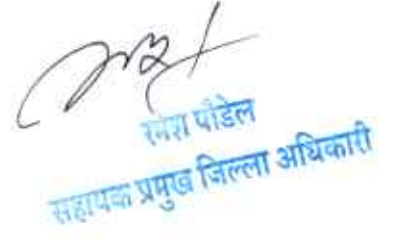 रमेश पौडेल
सहायक प्रमुख जिल्ला अधिकारी